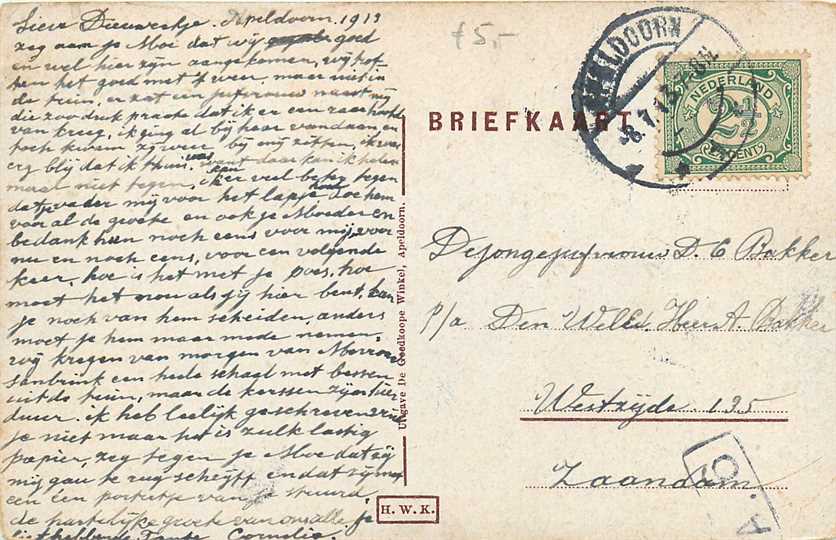 Lieve Dieuwertje. Apeldoorn. 1913
zeg aan je Moe dat wij goed
en wel hier zijn aangekomen, wij hof-
fen het goed met 't weer, maar uit in
de trein, er zat een juffrouw naast mij
die zoo druk praate dat ik er een
van kreeg, ik ging al bij haar vandaan, en
toch kwam zij weer bij mij zitten, ik was
erg blij dat ik thuis was want daar kan ik hele-
maal niet tegen, ik kan er veel beter tegen
dat je vader mij voor het lapje houd doe hem
vooral de groete en ook je Moeder en
bedank hun nog eens voor mij, voor
nu en noch eens, voor een volgende
keer, hoe is het met je poes, hoe
moet het nou als jij hier bent, kan
je noch van hem scheiden, anders
moet je hem maar mede nemen.
wij kregen van morgen van
een hele schaal met bessen
uit de tuin, maar de kerssen zijn hier
duur. ik heb leelijk geschreven
je niet maar het is zulk lastig
papier, zeg tegen je Moe dat zij
mij gau te rug schrijft en dat zij
een een portretje van je stuurd.
de hartelijke groete van ons alle je
liefhebbende Tante Cornelia.
£5,-
BRIEFKAART
APELDOORN
-8.7.13
NEDERLAND
2½
CENT
Dejongejufvrouw D. C Bakker
p/a Den WelEd. Heer A. Bakker
Westzijde. 135
Zaandam.
Uitgave De Goedkoope Winkel, Apeldoorn.
H. W. K.